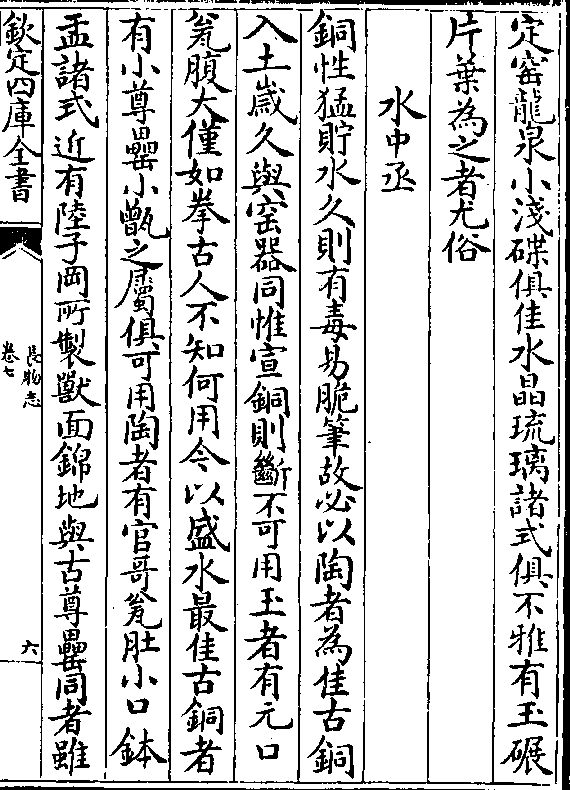 定窑龍泉小淺碟俱佳水晶琉璃諸式俱不雅有玉碾
片葉為之者尤俗
水中丞
銅性猛貯水久則有毒易脆筆故必以陶者為佳古銅
入土歲久與窑器同惟宣銅則斷不可用玉者有元口
瓮腹大僅如拳古人不知何用今以盛水最佳古銅者
有小尊罍小甑之屬俱可用陶者有官哥瓮肚小口鉢
盂諸式近有陸子岡所製獸面錦地與古尊罍同者雖
欽定四庫全書
長物志
卷七
六